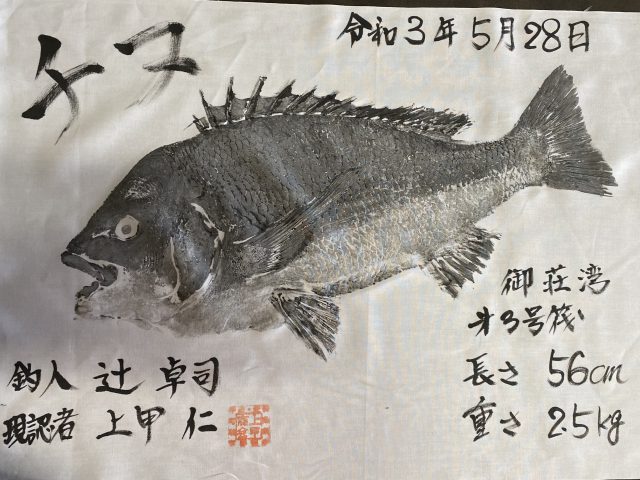 チヌ
令和3年5月28日
御荘湾
才3号筏
長さ 56cm
重さ 2.5kg
釣人 辻 卓司
現認者 上甲 仁